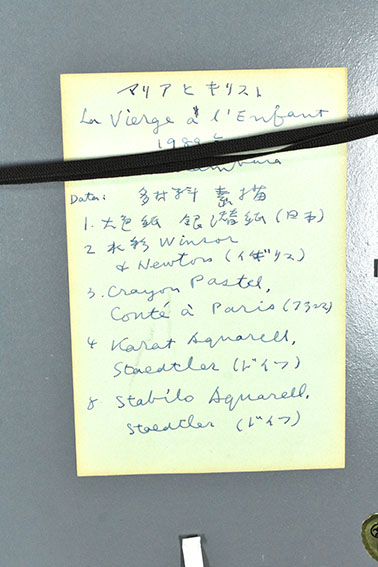 マリアと キリスト
La Vierge à l'Enfant
1989年
Data: 多材料 素描
1. 大色紙 銀潜紙 (日本)
2 水彩 Winsor
& Newton (イギリス)
3. Crayon Pastel,
Conté à Paris (フランス)
4 Karat Aquarell,
Staedtler (ドイツ)
8 Stabilo Aquarell,
Staedtler (ドイツ)